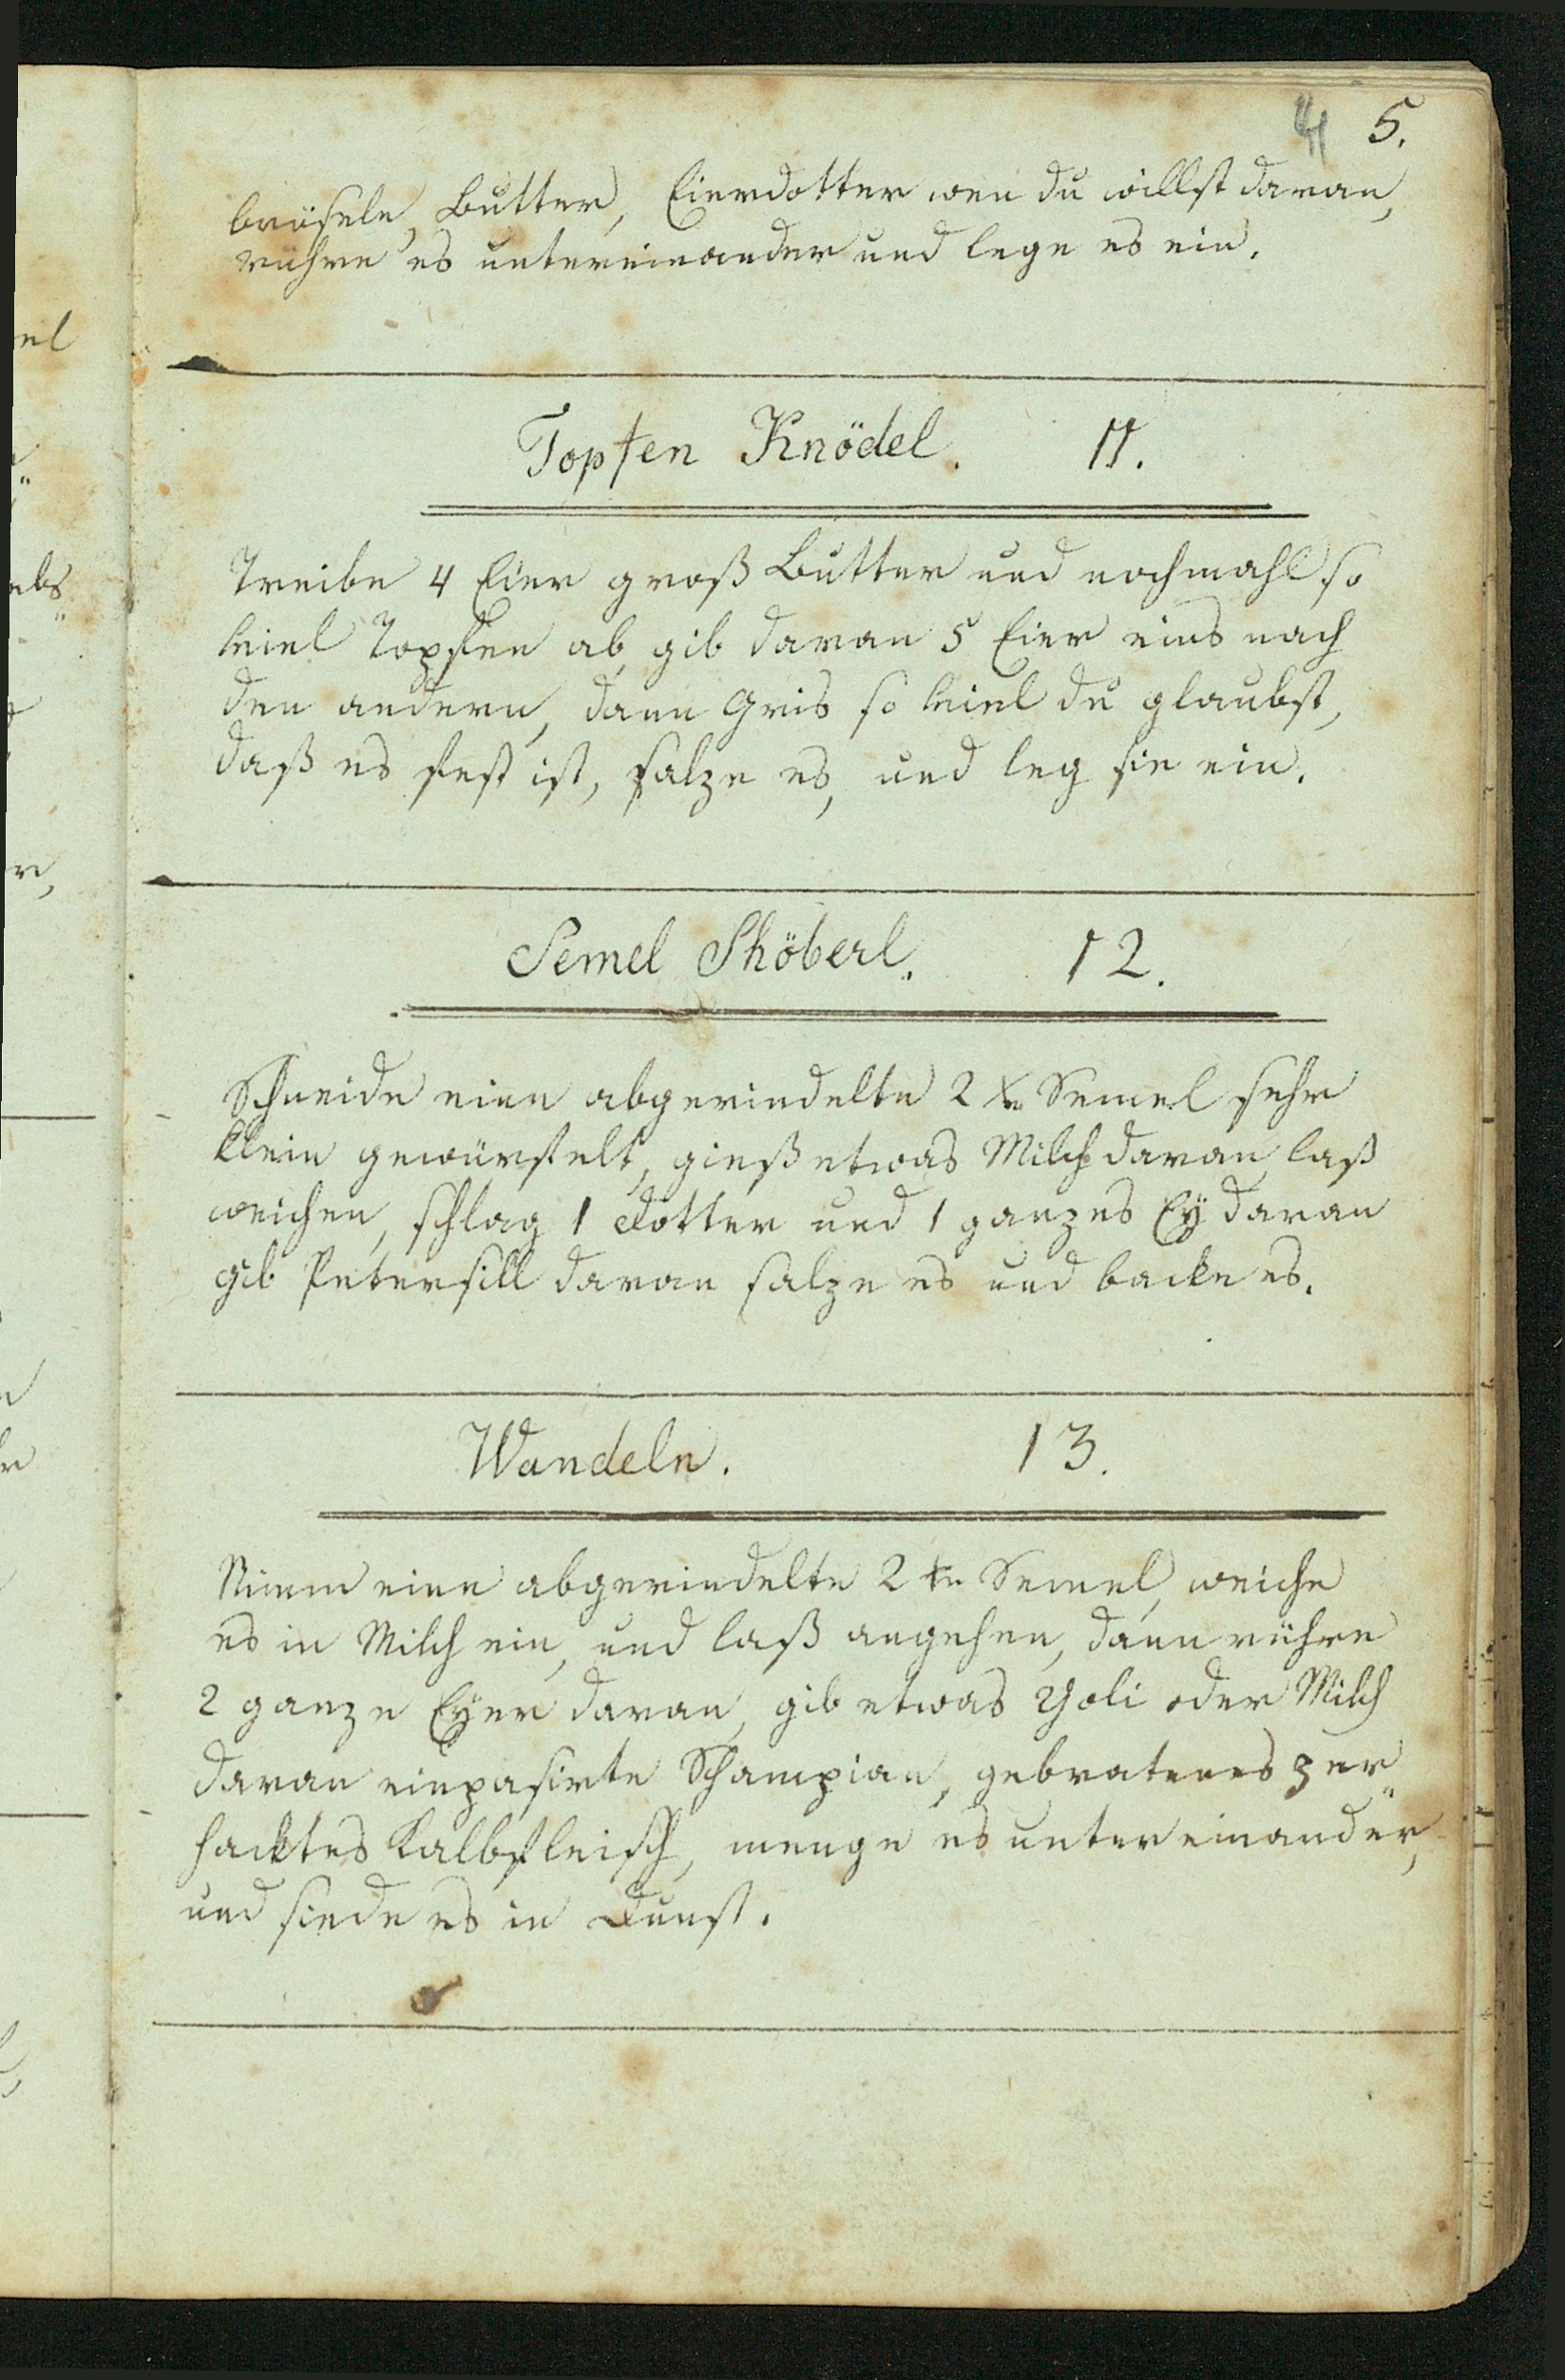 4 5.
bröseln, Butter, Eierdotter wen du willst daran,
rühre es untereinander und lege es ein.
Topfen Knödel. 11.
Treibe 4 Eier groß Butter und nochmahl so
viel Topfen ab, gib daran 5 Eier eins nach
den andern, dann Gris so viel du glaubst,
daß es fest ist, salze es, und leg sie ein.
Semel Shöberl. 12.
Schneide eine abgerindelte 2 xr Semel sehr
klein gewürfelt, gieß etwas Milch daran, laß
weichen, schlag 1 Dotter und 1 ganzes Ey daran
gib Petersill daran salze es und backe es.
Wandeln. 13.
Nimm eine abgerindelte 2 xr Semel, weiche
es in Milch ein, und laß angehen, dann rühre
2 ganze Eyer daran, gib etwas Goli oder Milch
daran einpasirte Schampian, gebratenes zer„
hacktes Kalbfleisch, menge es untereinander,
und siede es in Dunst.